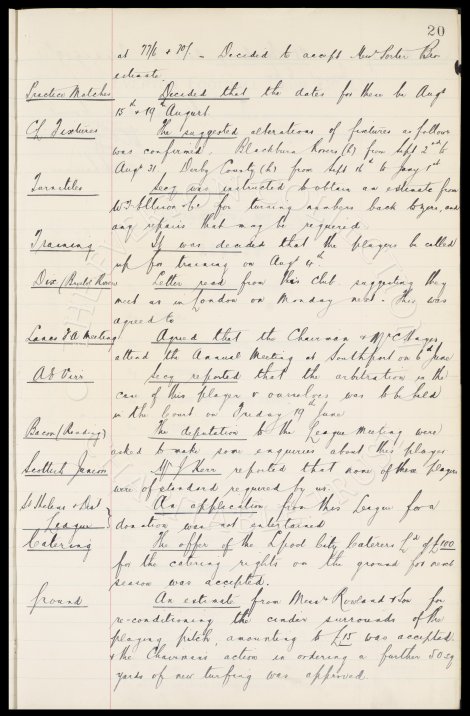 20
at 77/6 & 70/- Decided to accept Messrs Porter Bros
estimate.
Practice Matches Decided that the dates for these be Augt
15th & 19th August
CL Fixtures The suggested alterations of fixtures as follows
was confirmed. Blackburn Rovers (h) from Sept 2nd to
Augt 31. Derby County (h) from Sept 16th to Jany 1st
Turnstiles Secy was instructed to obtain an estimate from
W.T. Ellison & Co for turning numbers back to zero, and
any repairs that may be required.
Training It was decided that the players be called
up for training on Augt 4th
Dix (Bristol Rovers Letter read from this club suggesting they
meet us in London on Monday next. This was
agreed to
Lancs F.A Meeting Agreed that the Chairman & Mr C Hayes
attend the Annual Meeting at Southport on 6th June
Secy reported that the arbitration in the
case of this player & ourselves was to be held
in the Court on Friday 19th June
Bacon (Reading) The deputation to the League Meeting were
asked to make some enquiries about this player
Scottish Juniors Mr J Kerr reported that none of these players
were of standard required by us.
St Helens & Dist League } An application from this League for a
donation was not entertained
Catering The offer of the L'pool City Caterers Ld of £100
for the catering rights on the ground for next
season was accepted.
Ground An estimate from Messrs Rowland & Son for
re-conditioning the cinder surrounds of the
playing pitch, amounting to £15 was accepted.
& the Chairmans action in ordering a further 50 sq
yards of new turfing was approved